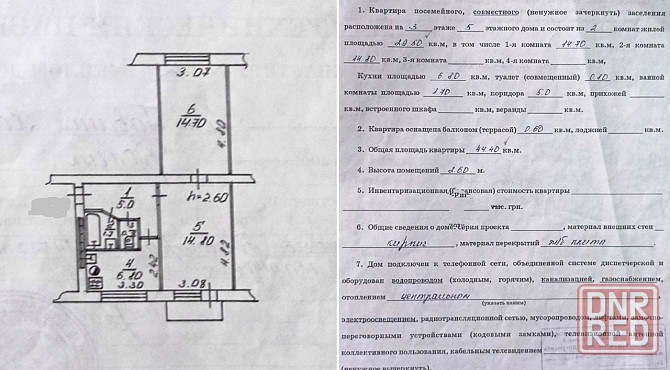 3.07
6
14.70
4.80
h=2.60
1
5.0
5
14.80
4.82
4
6.80
2.42
3.30
3.08
1. Квартира посемейного, совместного (ненужное зачеркнуть) заселения
расположена на 3 этаже 5 этажного дома и состоит из 2 комнат жилой
площадью 29.50 кв.м, в том числе 1-я комната 14.70 кв.м, 2-я комната
14.80 кв.м, 3-я комната кв.м, 4-я комната кв.м.
Кухни площадью 6.80 кв.м, туалет (совмещенный) 0.80 кв.м, ванной
комнаты площадью 1.70 кв.м, коридора 5.0 кв.м, прихожей
кв.м, встроенного шкафа кв.м, веранды кв.м.
2. Квартира оснащена балконом (террасой) 0.60 кв.м, лоджией кв.м.
3. Общая площадь квартиры 44.40 кв.м.
4. Высота помещений 2.60 м.
5. Инвентаризационная стоимость квартиры
тыс. грн.
6. Общие сведения о доме: серия проекта , материал внешних стен
кирпич , материал перекрытий ж/б плита .
7. Дом подключен к телефонной сети, объединенной системе диспетчерской и
оборудован водопроводом (холодным, горячим), канализацией, газоснабжением,
отоплением центральном
(указать каким)
электроосвещением, радиотрансляционной сетью, мусоропроводом, лифтами, замочно-
переговорными устройствами (кодовыми замками), телевизионной антенной
коллективного пользования, кабельным телевидением
(ненужное вычеркнуть).
DNR
RED